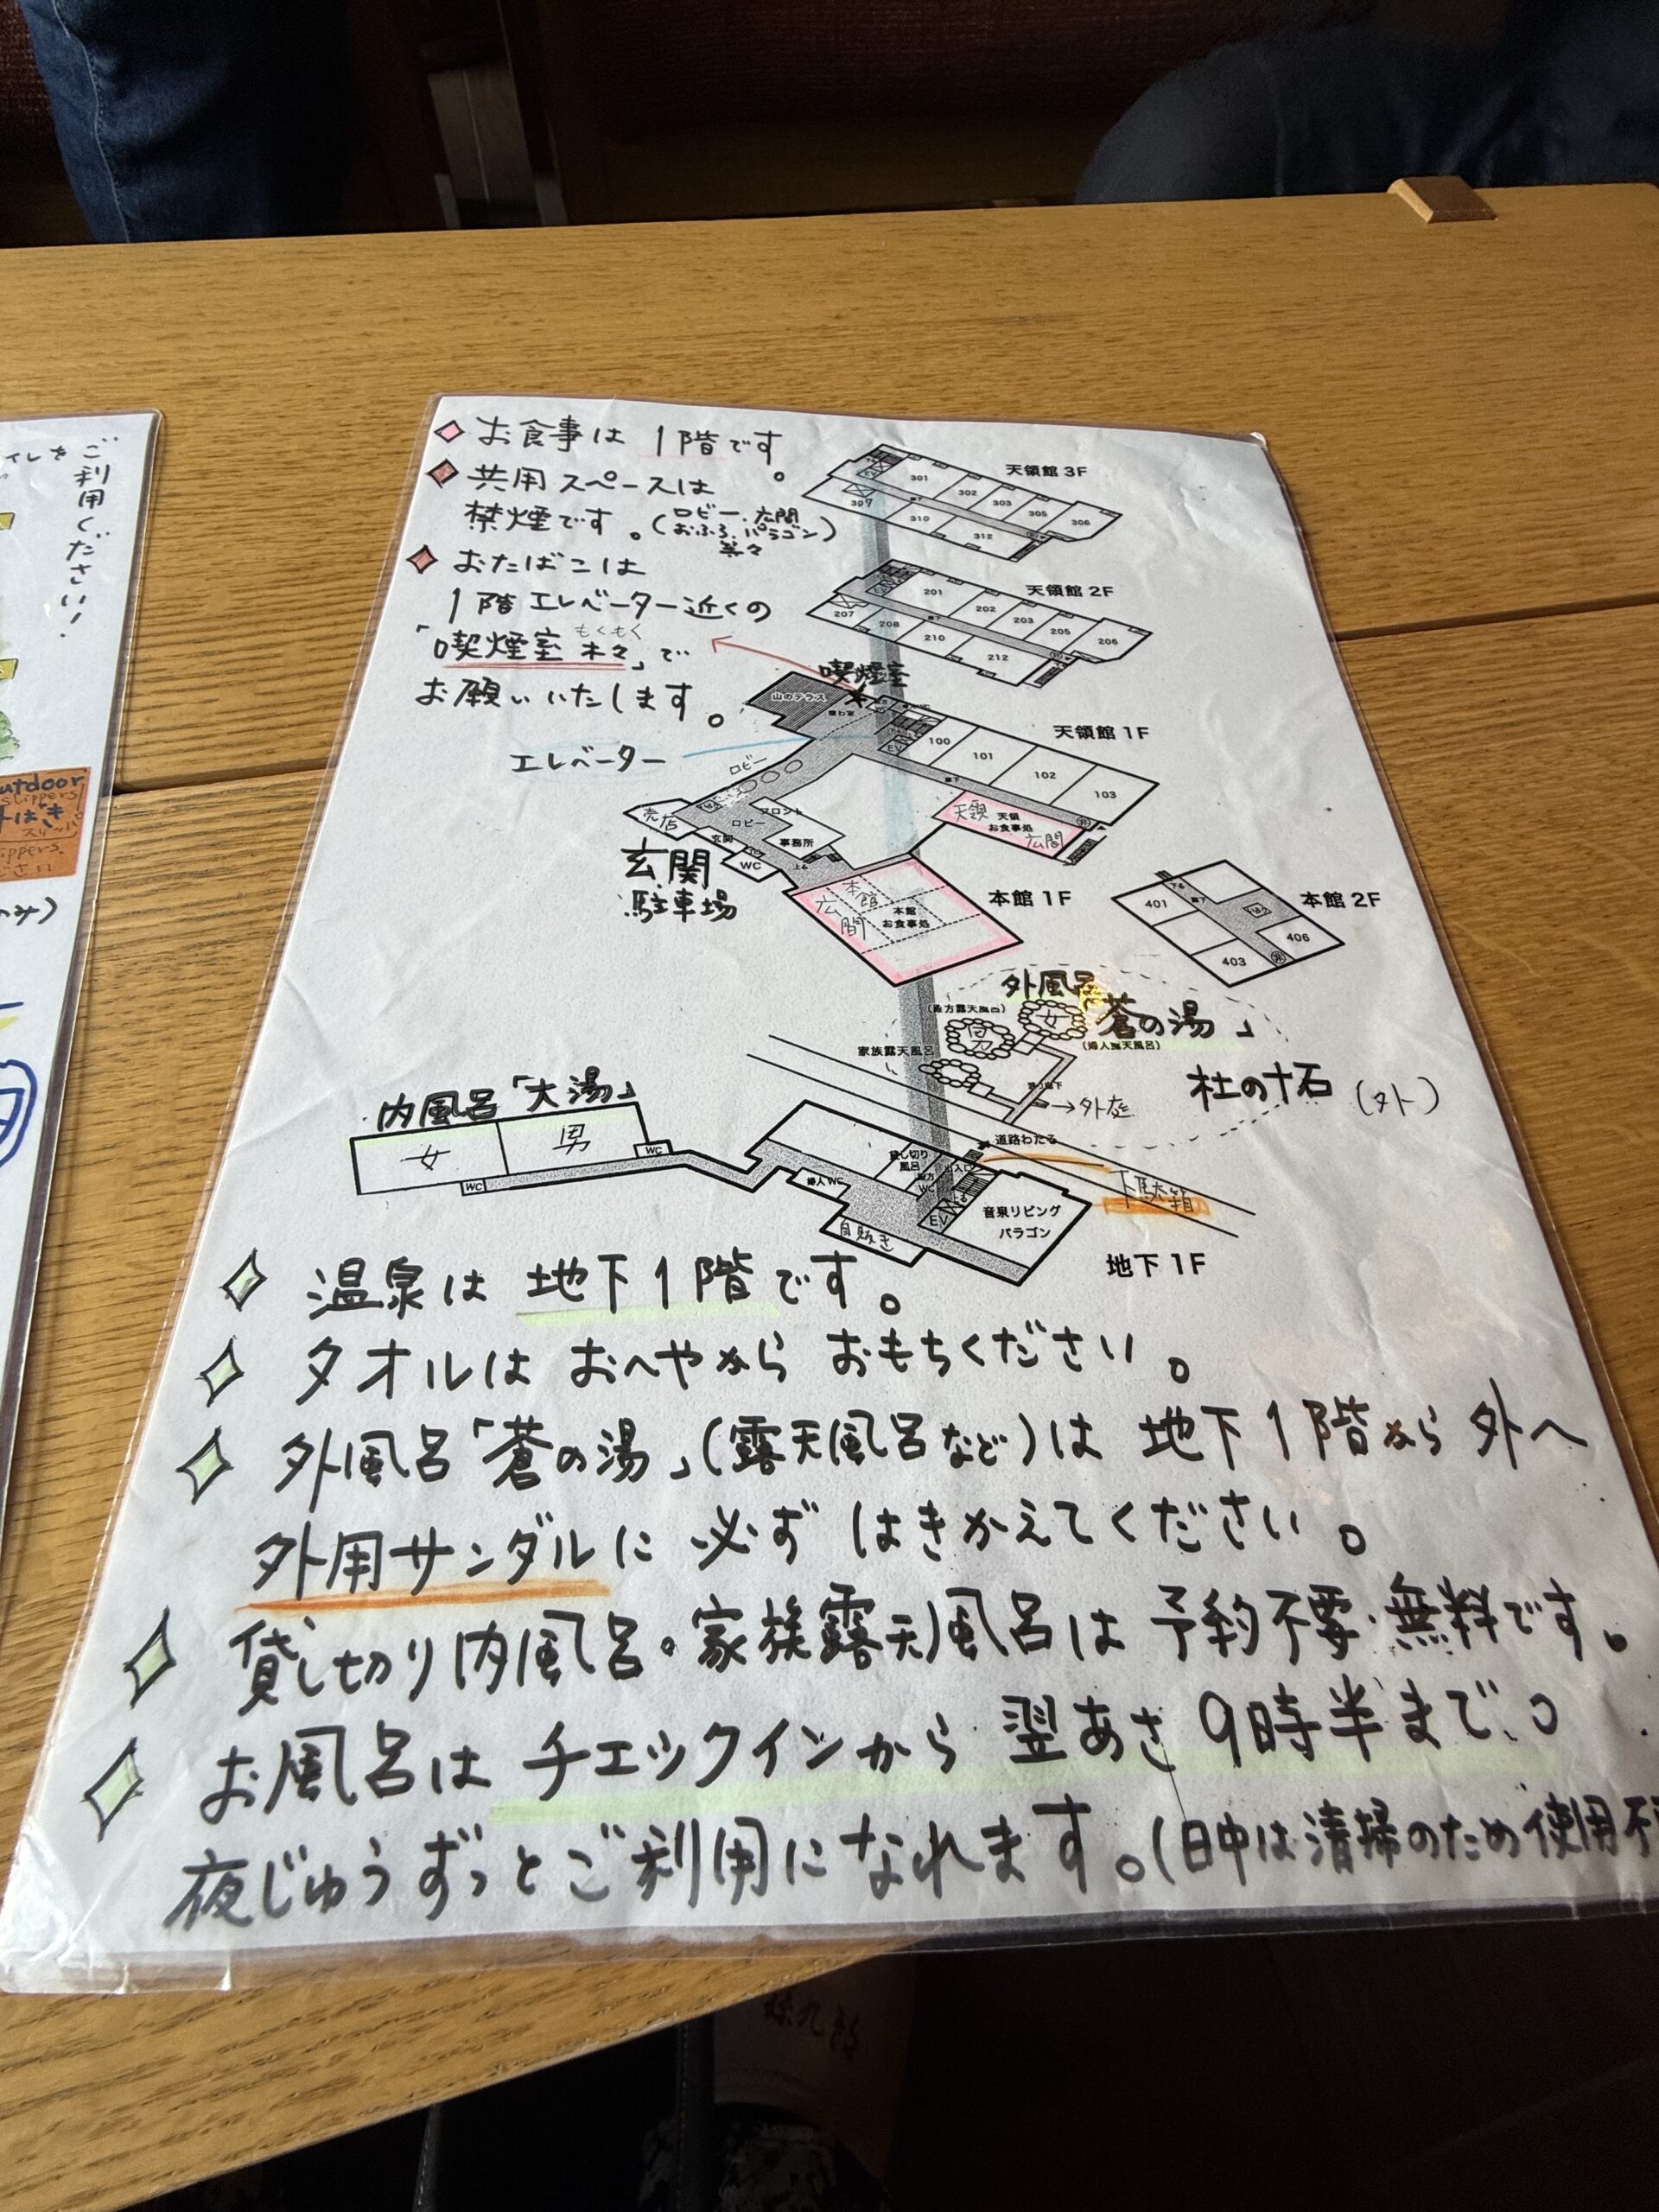 ご利用ください！
outdoor
slippers
◇お食事は1階です。
◇共用スペースは
禁煙です。（ロビー・広間
おふろ・パラゴン
等々）
◇おたばこは
1階エレベーター近くの
もくもく
「喫煙室 木々」で
お願いいたします。
エレベーター
天領館 3F
301
302
303
305
306
307
310
312
天領館 2F
201
202
203
205
206
207
208
210
212
喫煙室
山のテラス
天領館 1F
EV
100
101
102
103
ロビー
売店
フロント
ロビー
事務所
玄関
WC
玄関
駐車場
天領
広間
天領
お食事処
本館
広間
本館
お食事処
本館 1F
本館 2F
401
403
406
外風呂
「蒼の湯」
(殿方露天風呂)
男
女
(婦人露天風呂)
家族露天風呂
杜の十石（外）
→外庭
道路わたる
下駄箱
内風呂「大湯」
女
男
WC
WC
婦人WC
貸し切り
風呂
殿方
WC
出入口
EV
自販き
音泉リビング
パラゴン
地下 1F
◇温泉は 地下1階です。
◇タオルは おへやから おもちください。
◇外風呂「蒼の湯」(露天風呂など)は 地下1階から 外へ
外用サンダルに 必ず はきかえてください。
◇貸し切り内風呂・家族露天風呂は 予約不要・無料です。
◇お風呂は チェックインから 翌あさ 9時半まで。
夜じゅうずっとご利用になれます。（日中は清掃のため使用不